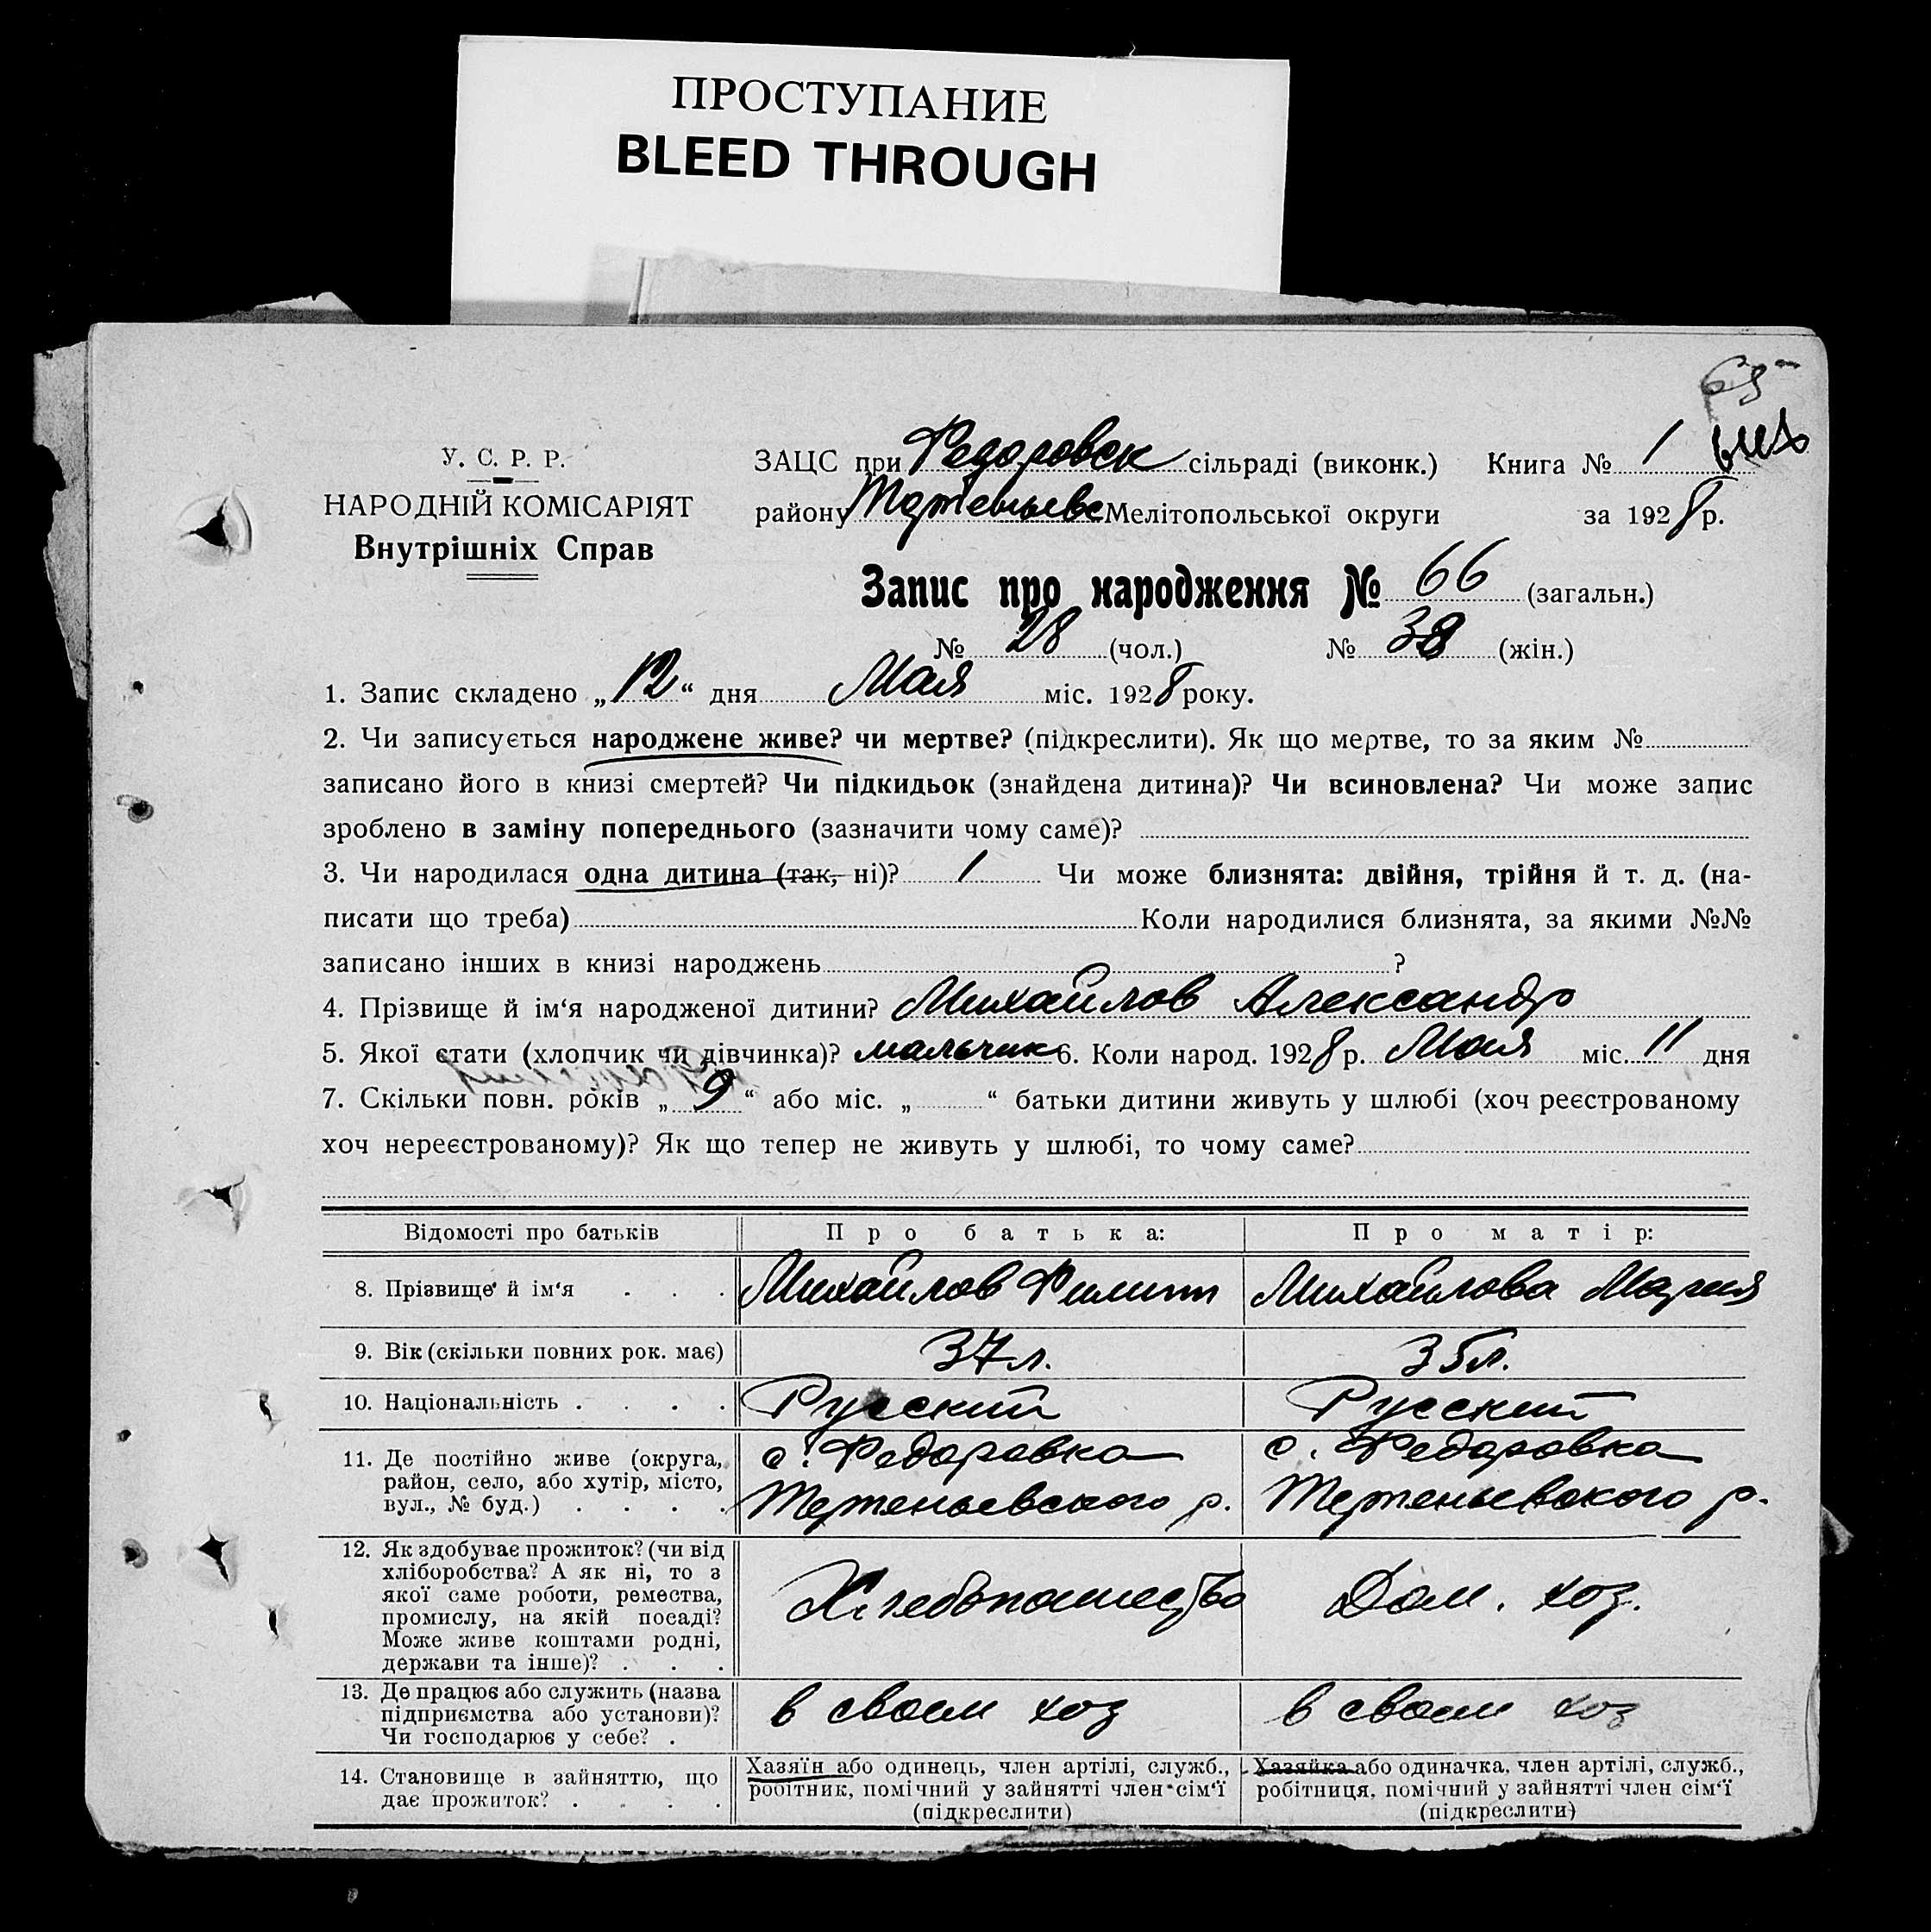 ПРОСТУПАНИЕ
BLEED THROUGH
65
У. С. Р. Р.
НАРОДНІЙ КОМІСАРІЯТ
Внутрішніх Справ
ЗАЦС при Федоровск сільраді (виконк.) Книга № 1
району Мелітопольської округи за 1928 р.
Запис про народження № 66 (загальн.)
№ 28 (чол.) № 38 (жін.)
1. Запис складено „12“ дня Мая міс. 1928 року.
2. Чи записується народжене живе? чи мертве? (підкреслити). Як що мертве, то за яким №
записано його в книзі смертей? Чи підкидьок (знайдена дитина)? Чи всиновлена? Чи може запис
зроблено в заміну попереднього (зазначити чому саме)?
3. Чи народилася одна дитина (так, ні)? 1 Чи може близнята: двійня, трійня й т. д. (на-
писати що треба) Коли народилися близнята, за якими №№
записано інших в книзі народжень ?
4. Прізвище й ім‘я народженої дитини? Михайлов Александр
5. Якої стати (хлопчик чи дівчинка)? мальчик 6. Коли народ. 1928 р. Мая міс. 11 дня
7. Скільки повн. років „9“ або міс. „ “ батьки дитини живуть у шлюбі (хоч реєстрованому
хоч нереєстрованому)? Як що тепер не живуть у шлюбі, то чому саме?
Відомості про батьків Про батька: Про матір:
8. Прізвище й ім‘я . . . Михайлов Филипп Михайлова Мария
9. Вік (скільки повних рок. має) 37 л. 35 л.
10. Національність . . . . Русский Русский
11. Де постійно живе (округа,
район, село, або хутір, місто,
вул., № буд.) . . . .
с. Федоровка
Терпеньевского р.
с. Федоровка
Терпеньевского р.
12. Як здобуває прожиток? (чи від
хліборобства? А як ні, то з
якої саме роботи, ремества,
промислу, на якій посаді?
Може живе коштами родні,
держави та інше)? . . .
Хлебопашество
Дом. хоз.
13. Де працює або служить (назва
підприємства або установи)?
Чи господарює у себе? .
в своем хоз
в своем хоз
14. Становище в зайняттю, що
дає прожиток? . . . .
Хазяїн або одинець, член артілі, служб.,
робітник, помічний у зайнятті член сім‘ї
(підкреслити)
Хазяйка або одиначка, член артілі, служб.,
робітниця, помічний у зайнятті член сім‘ї
(підкреслити)